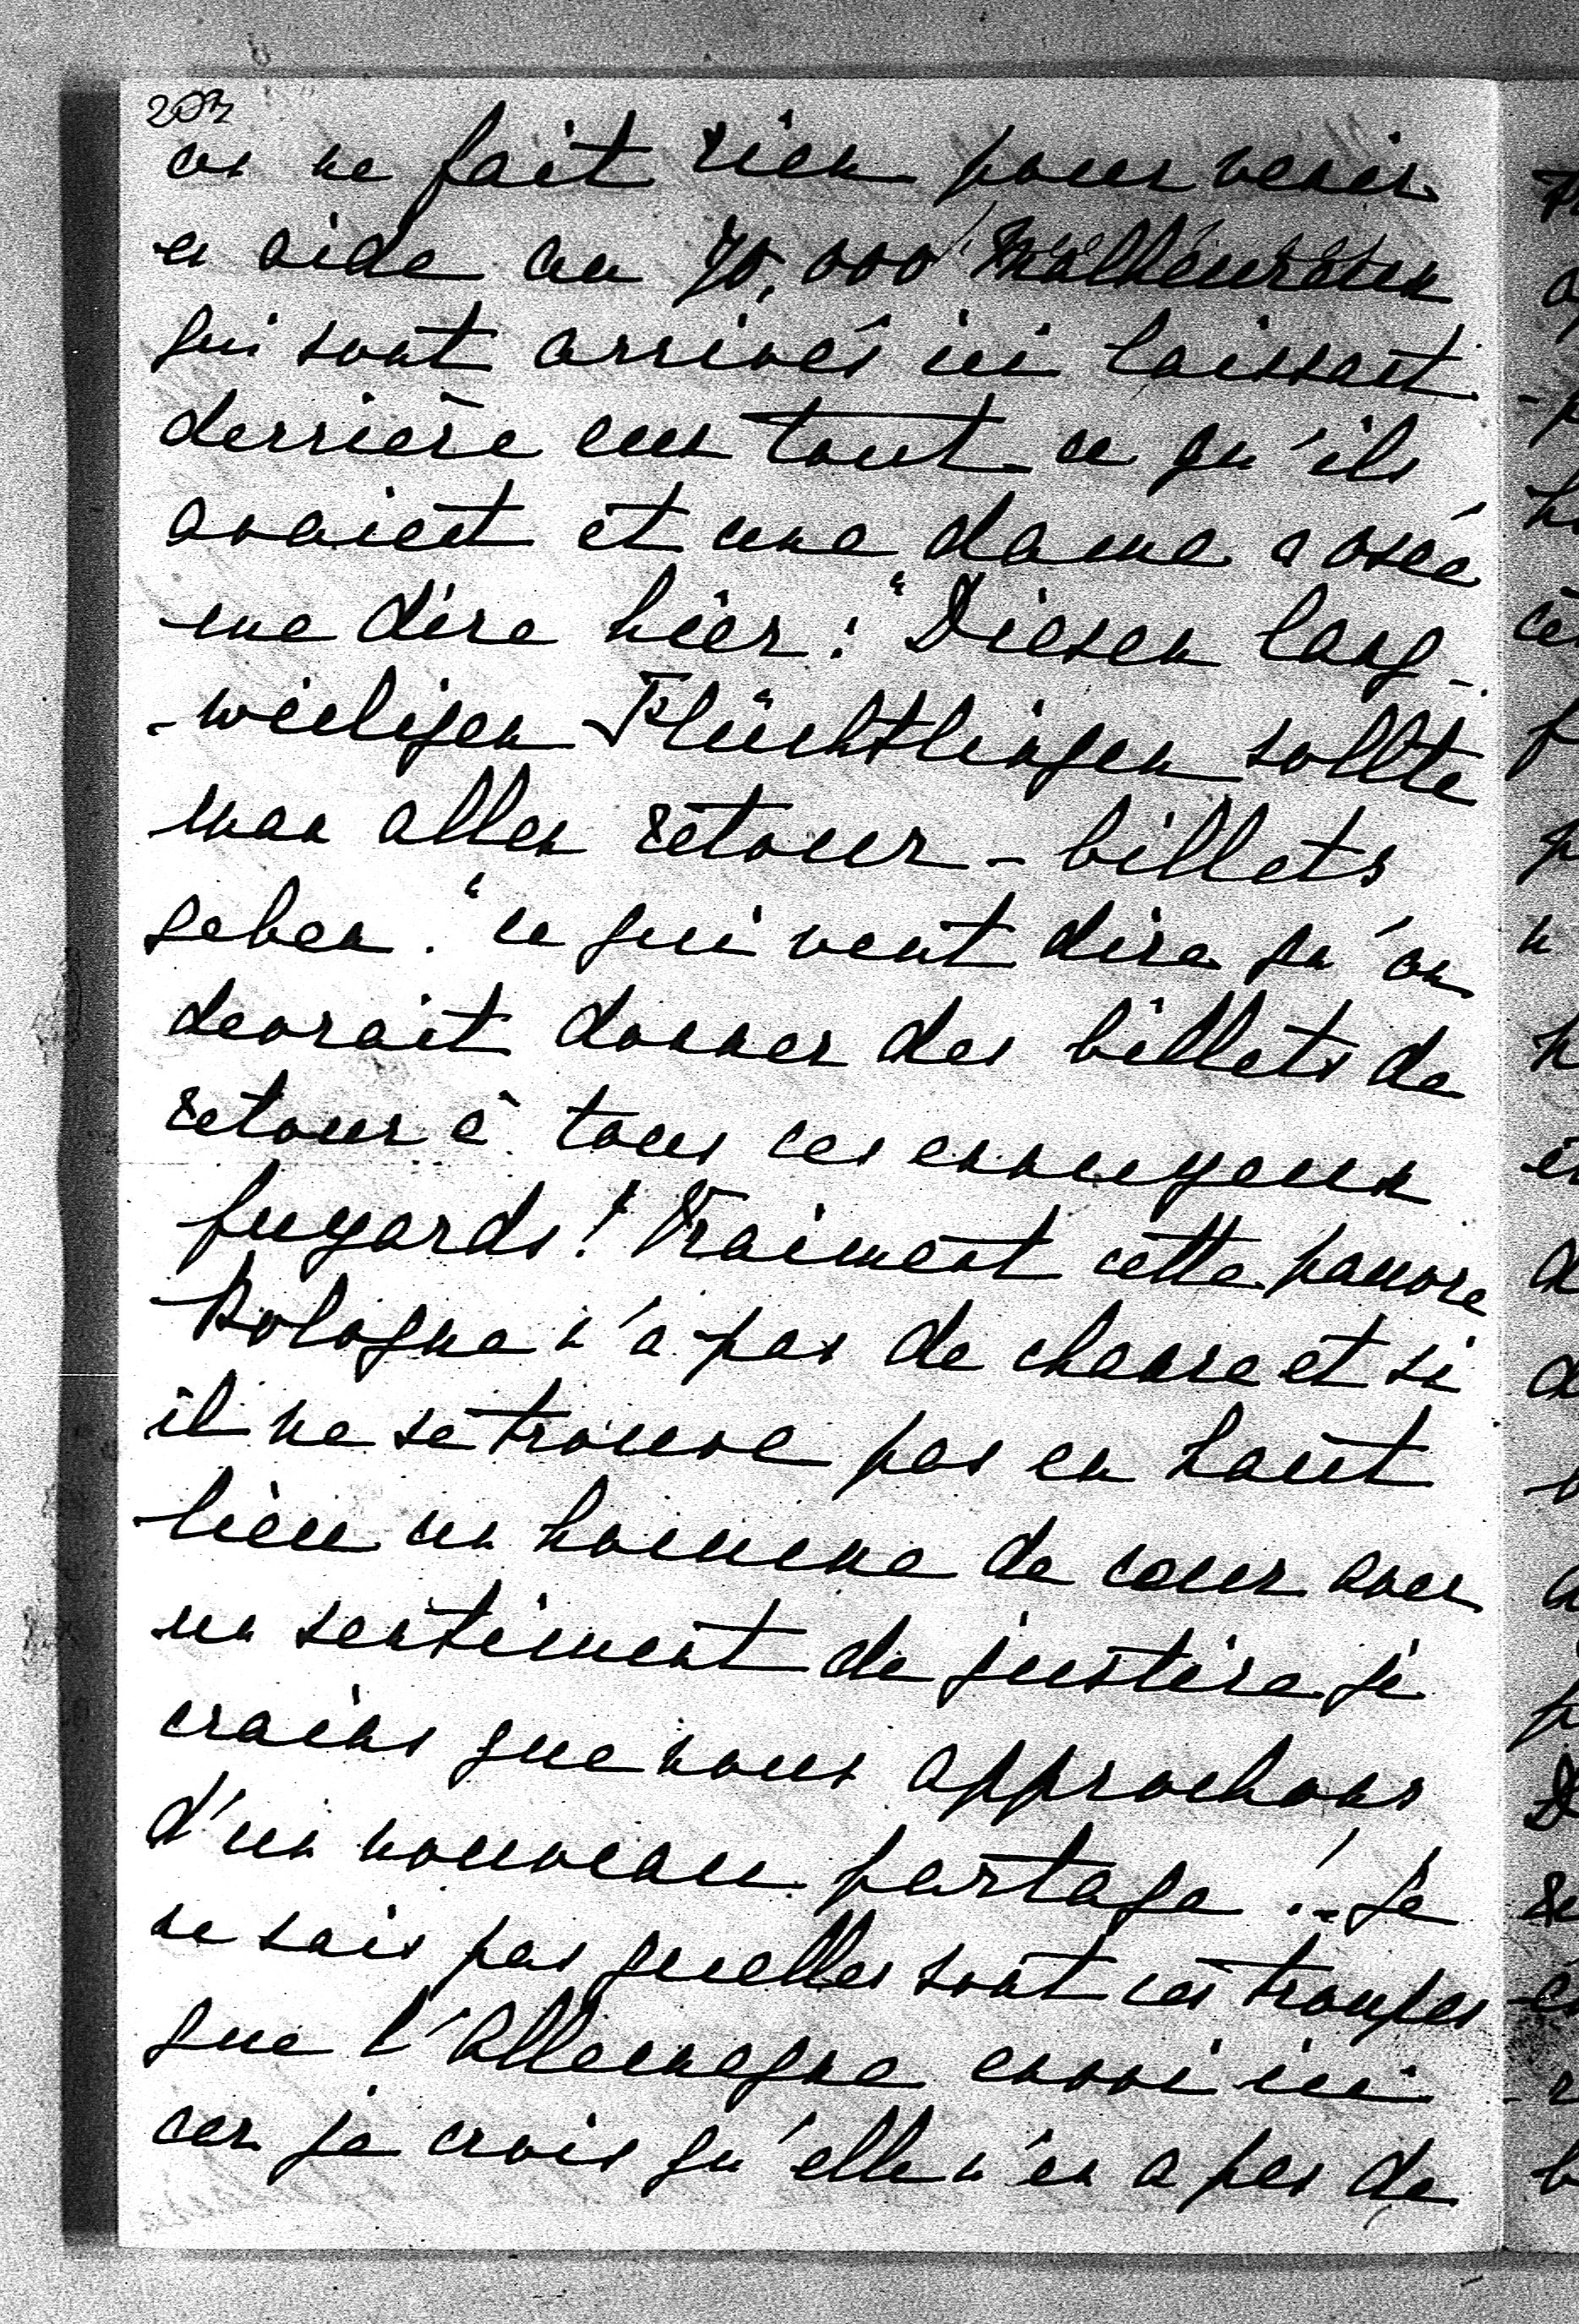 203
on ne fait rien pour venir
en aide au 70,000 malheureux
qui sont arrivés ici laissant
derrière eux tout ce qu'ils
avaient et une dame a osée
me dire hier: "Diesen lang-
-weiligen Flüchtlingen sollte
man allen retour-billets
geben." ce qui veut dire qu'on
devrait donner des billets de
retour à tous ces ennuyeux
fuyards! Vraiment cette pauvre
Pologne n'a pas de chance et si
il ne se trouve pas en haut
lieu un homme de cœur avec
un sentiment de justice je
crains que nous approchons
d'un nouveau partage!- Je
ne sais pas quelles sont ces troupes
que l'Allemagne envoi ici
car je crois qu'elle n'en a pas de